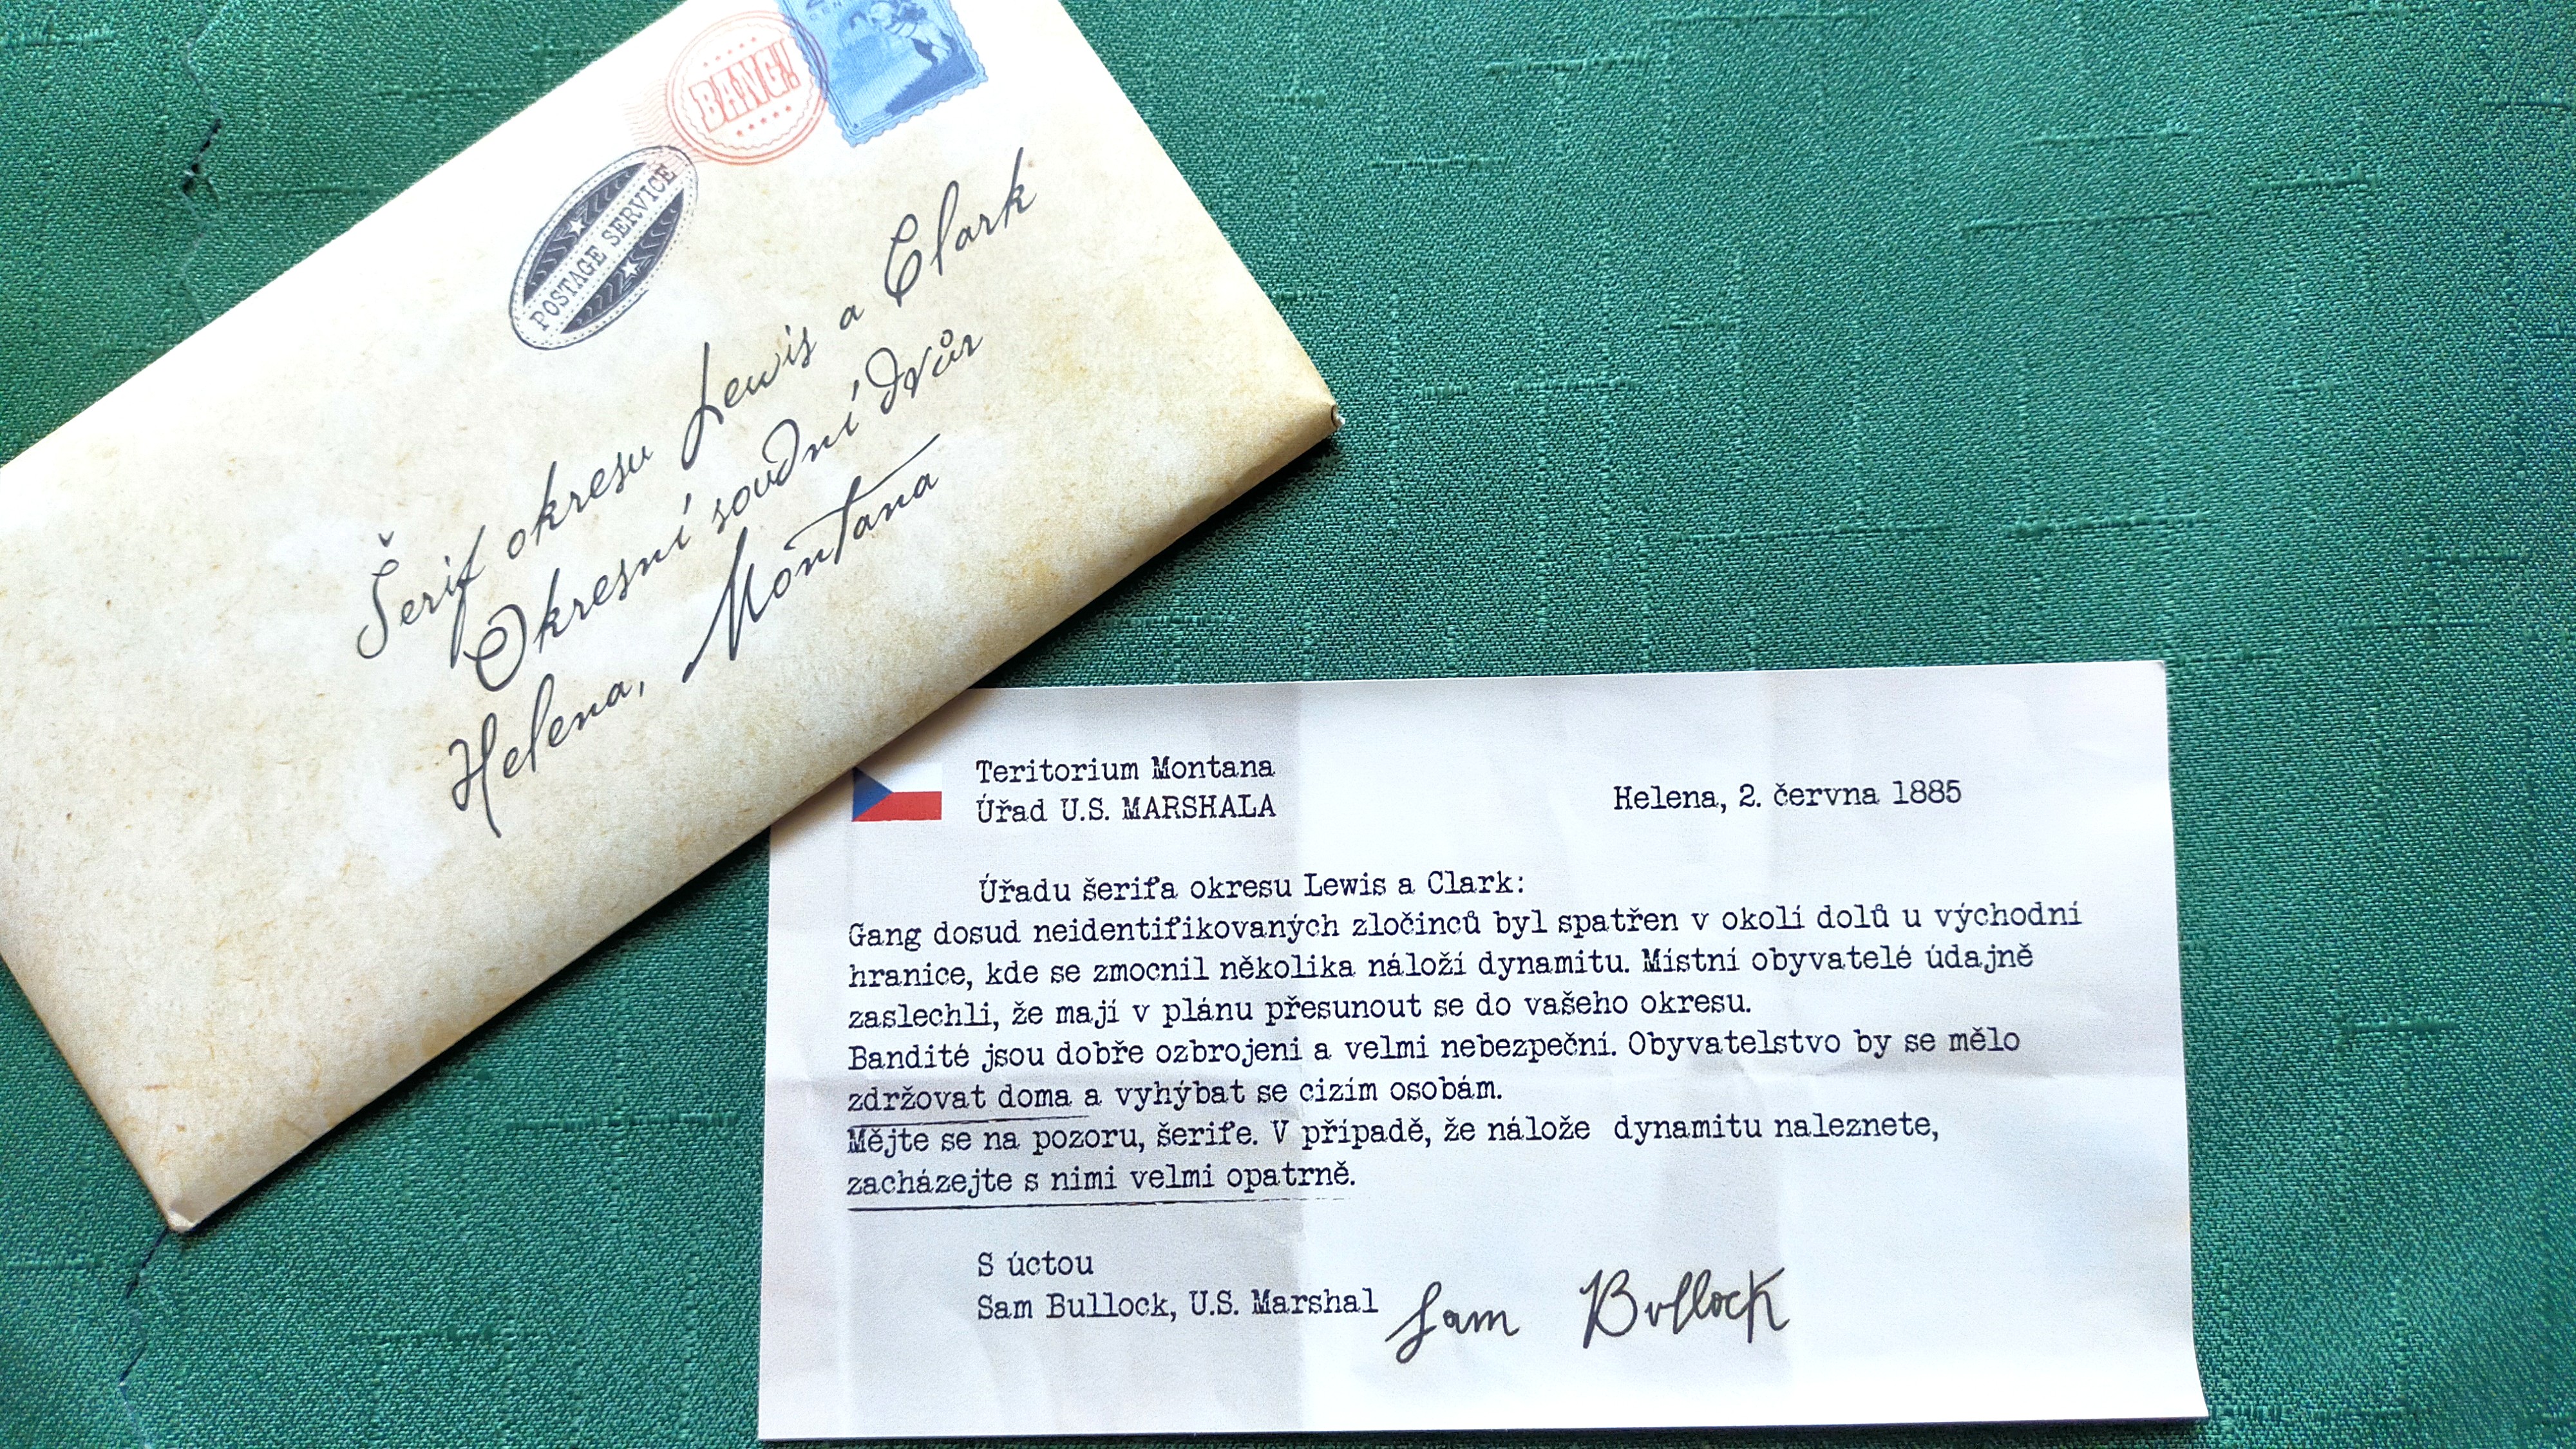 BANG!
POSTAGE SERVICE
Šerif okresu Lewis a Clark
Okresní soudní dvůr
Helena, Montana
Teritorium Montana
Úřad U.S. MARSHALA
Helena, 2. června 1885
Úřadu šerifa okresu Lewis a Clark:
Gang dosud neidentifikovaných zločinců byl spatřen v okolí dolů u východní
hranice, kde se zmocnil několika náloží dynamitu. Místní obyvatelé údajně
zaslechli, že mají v plánu přesunout se do vašeho okresu.
Bandité jsou dobře ozbrojeni a velmi nebezpeční. Obyvatelstvo by se mělo
zdržovat doma a vyhýbat se cizím osobám.
Mějte se na pozoru, šerife. V případě, že nálože dynamitu naleznete,
zacházejte s nimi velmi opatrně.
S úctou
Sam Bullock, U.S. Marshal
Sam Bullock